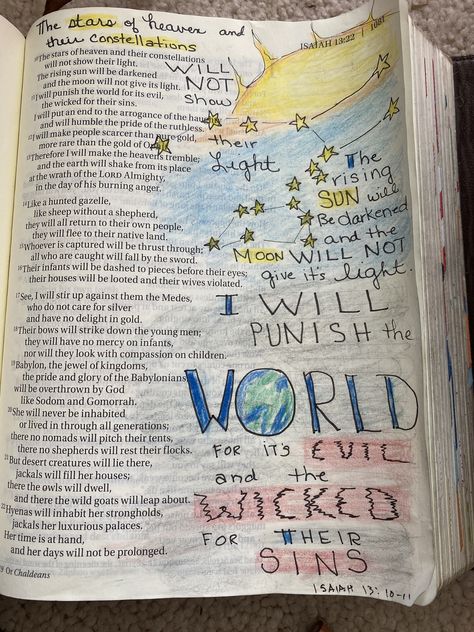 The stars of heaven and
their constellations
ISAIAH 13:22 | 1081
10The stars of heaven and their constellations
will not show their light.
The rising sun will be darkened
and the moon will not give its light.
11I will punish the world for its evil,
the wicked for their sins.
I will put an end to the arrogance of the hau
and will humble the pride of the ruthless.
12I will make people scarcer than pure gold,
more rare than the gold of O
13Therefore I will make the heavens tremble;
and the earth will shake from its place
at the wrath of the LORD Almighty,
in the day of his burning anger.
14Like a hunted gazelle,
like sheep without a shepherd,
they will all return to their own people,
they will flee to their native land.
15Whoever is captured will be thrust through;
all who are caught will fall by the sword.
16Their infants will be dashed to pieces before their eyes;
their houses will be looted and their wives violated.
17See, I will stir up against them the Medes,
who do not care for silver
and have no delight in gold.
18Their bows will strike down the young men;
they will have no mercy on infants,
nor will they look with compassion on children.
19Babylon, the jewel of kingdoms,
the pride and glory of the Babylonians,
will be overthrown by God
like Sodom and Gomorrah.
20She will never be inhabited
or lived in through all generations;
there no nomads will pitch their tents,
there no shepherds will rest their flocks.
21But desert creatures will lie there,
jackals will fill her houses;
there the owls will dwell,
and there the wild goats will leap about.
22Hyenas will inhabit her strongholds,
jackals her luxurious palaces.
Her time is at hand,
and her days will not be prolonged.
9 Or Chaldeans
WILL
NOT
Show
their
Light
The
rising
SUN will
Be darkened
and the
MOON WILL NOT
give it's light.
I WILL
PUNISH the
WORLD
FOR IT'S EVIL
and the
WICKED
FOR THEIR
SINS
ISAIAH 13:10-11